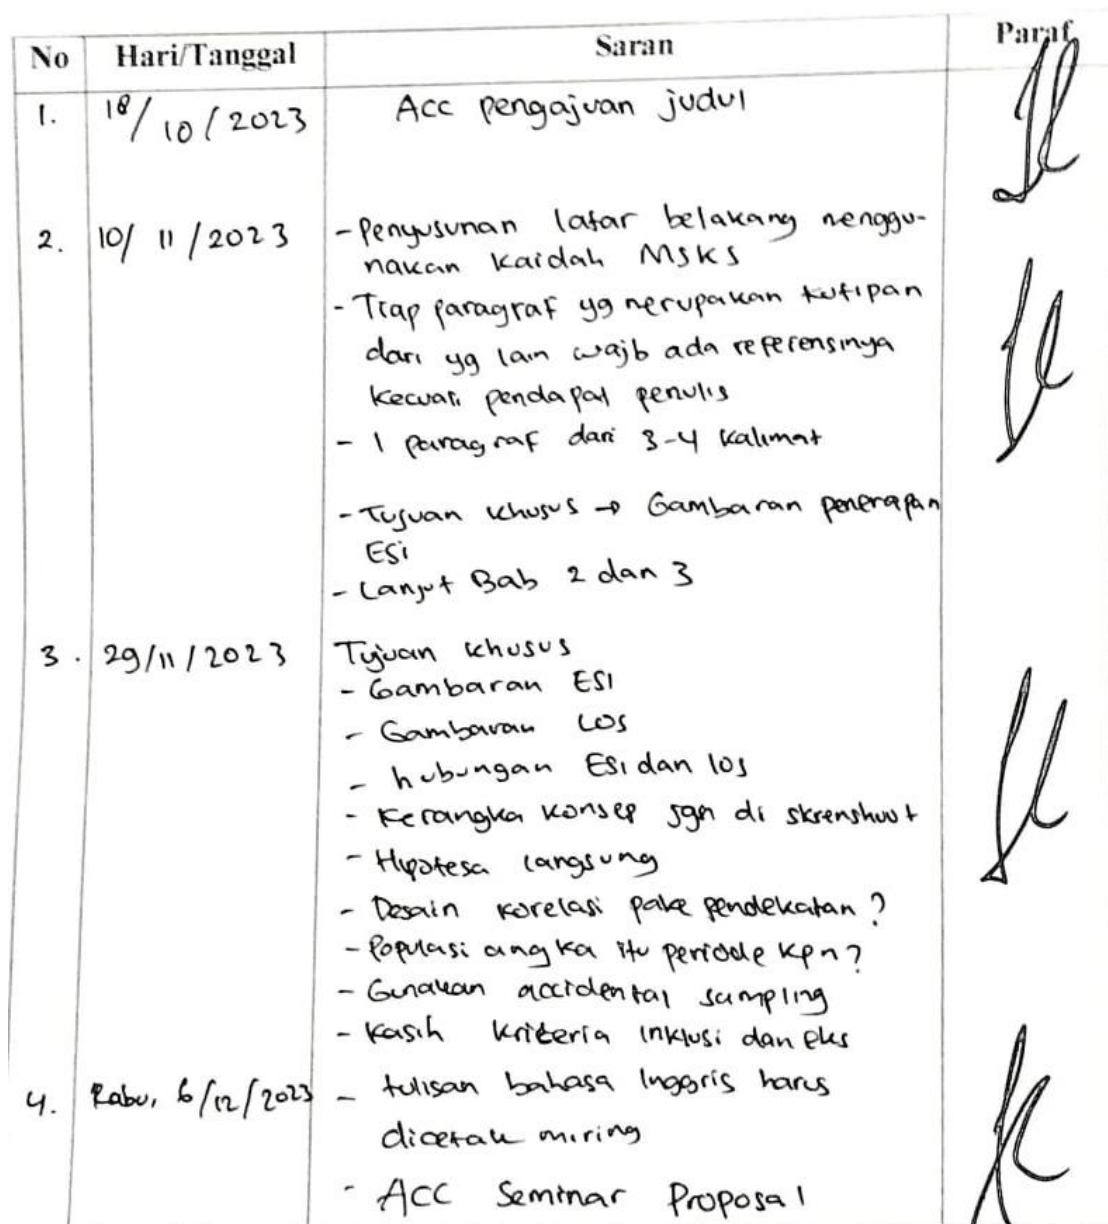 No Hari/Tanggal Saran Paraf
1. 18/10/2023 Acc pengajuan judul
2. 10/11/2023 - Penyusunan latar belakang menggu-
nakan kaidah MSKS
- Tiap paragraf yg merupakan kutipan
dari yg lain wajb ada referensinya
kecuali pendapat penulis
- 1 paragraf dari 3-4 kalimat
- Tujuan khusus → Gambaran penerapan
ESI
- Lanjut Bab 2 dan 3
3. 29/11/2023 Tujuan khusus
- Gambaran ESI
- Gambaran LOS
- hubungan ESI dan los
- Kerangka konsep sgn di skrenshuut
- Hipotesa langsung
- Desain korelasi pake pendekatan?
- Populasi angka itu periode kpn?
- Gunakan accidental sampling
- Kasih kriteria inklusi dan eks
4. Rabu, 6/12/2023 - tulisan bahasa Inggris harus
dicetak miring
- ACC Seminar Proposal